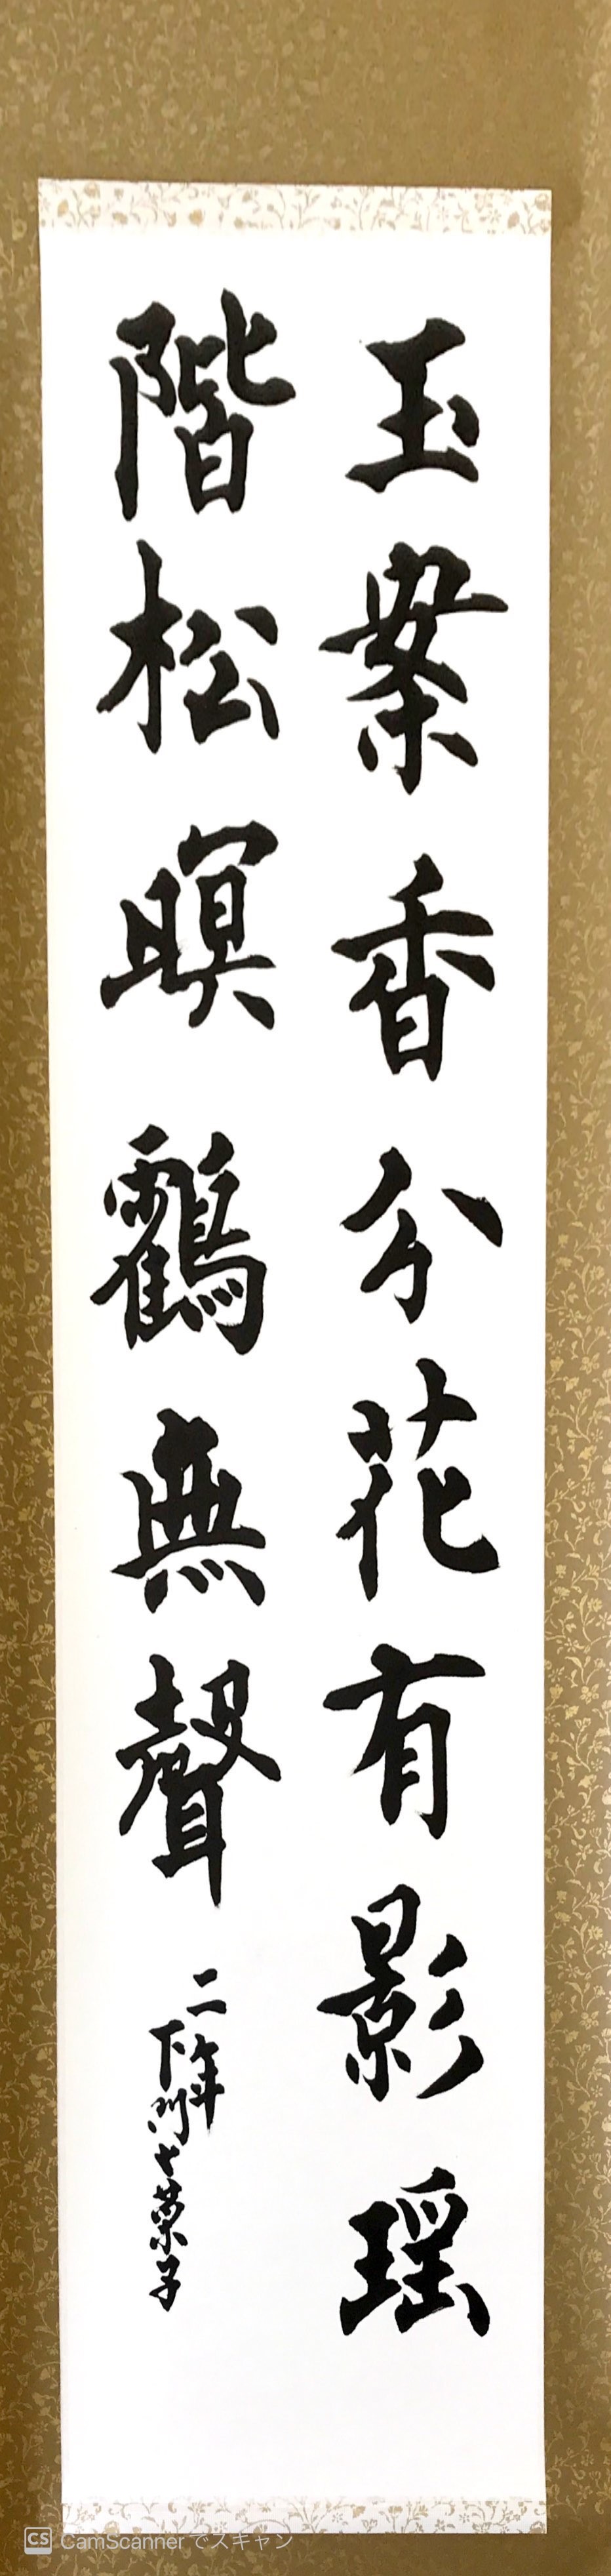 玉案香分花有影瑶
階松暝鶴無聲
二年
下門七菜子
CS CamScannerでスキャン